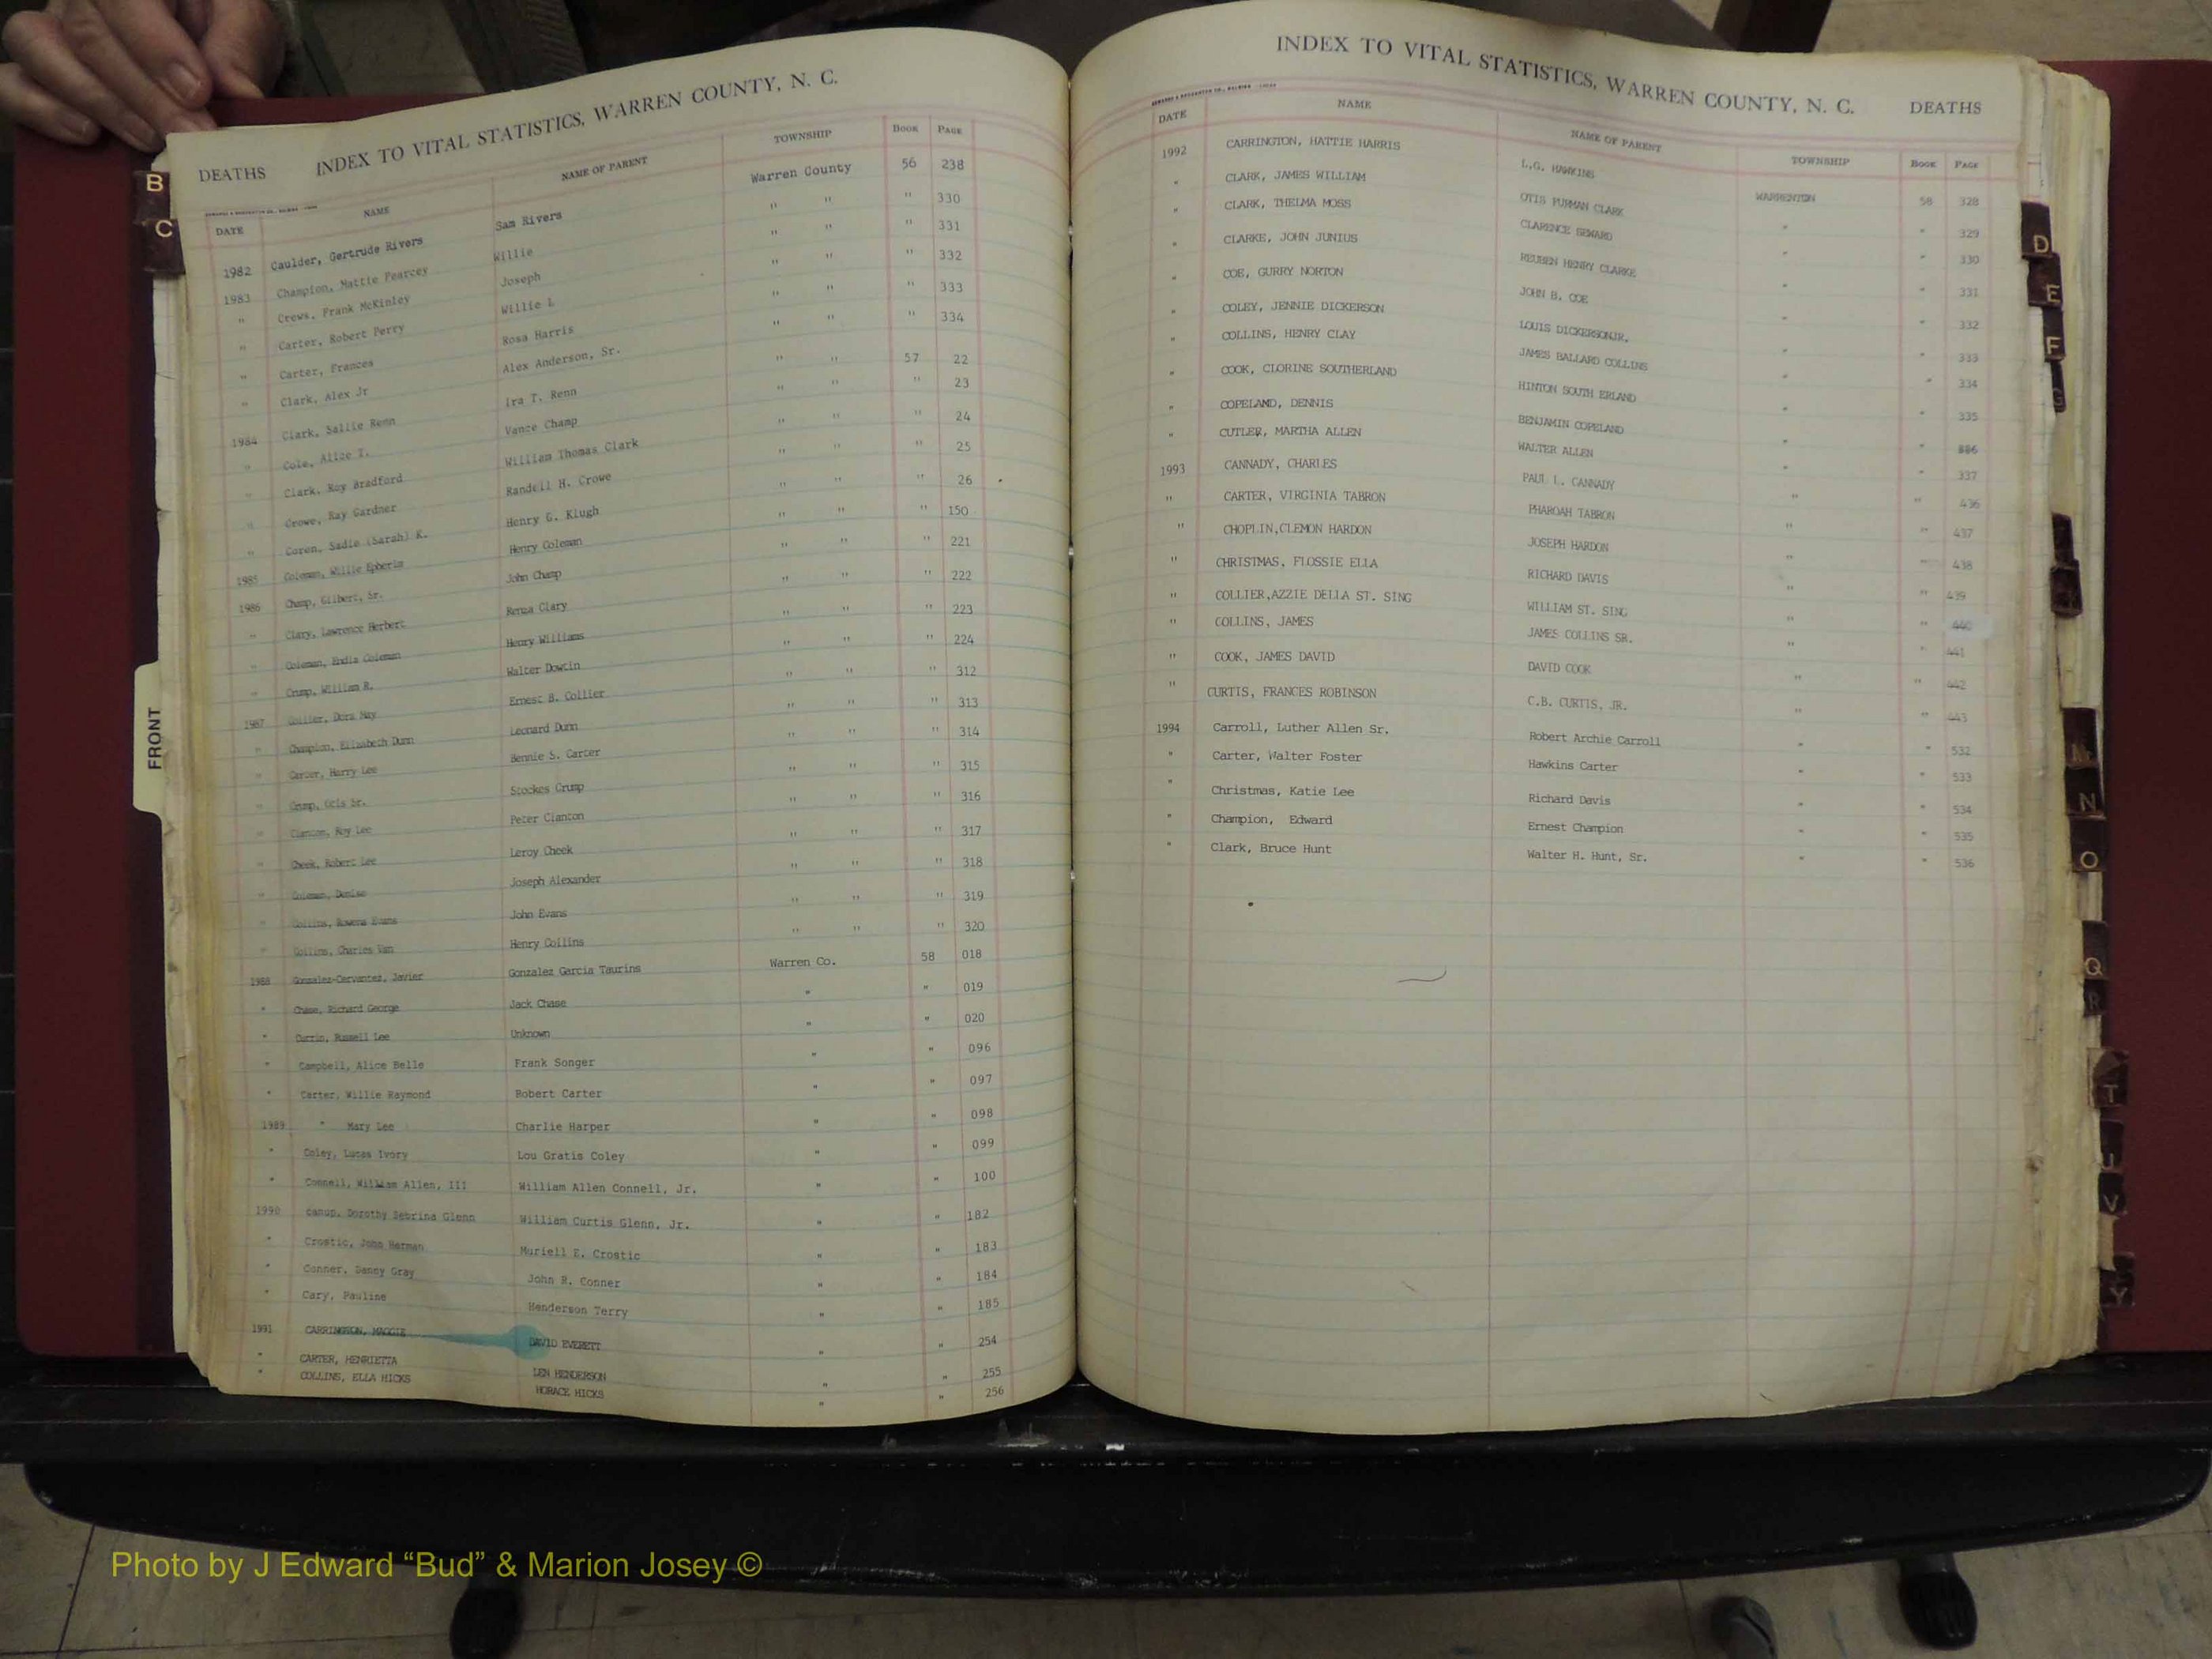 INDEX TO VITAL STATISTICS, WARREN COUNTY, N. C.
DEATHS
DATE NAME NAME OF PARENT TOWNSHIP BOOK PAGE
1982 Caulder, Gertrude Rivers Sam Rivers Warren County 56 238
1983 Champion, Mattie Pearcey Willie " " " 330
" Crews, Frank McKinley Joseph " " " 331
" Carter, Robert Perry Willie L " " " 332
" Carter, Frances Rosa Harris " " " 333
" Clark, Alex Jr Alex Anderson, Sr. " " " 334
1984 Clark, Sallie Renn Ira T. Renn " " 57 22
" Cole, Alice T. Vance Champ " " " 23
" Clark, Roy Bradford William Thomas Clark " " " 24
" Crowe, Ray Gardner Randell H. Crowe " " " 25
" Coren, Sadie (Sarah) K. Henry G. Klugh " " " 26
1985 Coleman, Willie Epheria Henry Coleman " " " 150
1986 Champ, Gilbert, Sr. John Champ " " " 221
" Clary, Lawrence Herbert Renza Clary " " " 222
" Coleman, Endia Coleman Henry Williams " " " 223
" Crump, William R. Walter Dowtin " " " 224
1987 Collier, Dora May Ernest B. Collier " " " 312
" Champion, Elizabeth Dunn Leonard Dunn " " " 313
" Carter, Harry Lee Bennie S. Carter " " " 314
" Crump, Otis Sr. Stockes Crump " " " 315
" Clanton, Roy Lee Peter Clanton " " " 316
" Cheek, Robert Lee Leroy Cheek " " " 317
" Coleman, Denise Joseph Alexander " " " 318
" Collins, Rowena Evans John Evans " " " 319
" Collins, Charles Van Henry Collins " " " 320
1988 Gonzalez-Cervantez, Javier Gonzalez Garcia Taurins Warren Co. 58 018
" Chase, Richard George Jack Chase " " 019
" Currin, Russell Lee Unknown " " 020
" Campbell, Alice Belle Frank Songer " " 096
" Carter, Willie Raymond Robert Carter " " 097
1989 " Mary Lee Charlie Harper " " 098
" Coley, Lucas Ivory Lou Gratis Coley " " 099
" Connell, William Allen, III William Allen Connell, Jr. " " 100
1990 canup, Dorothy Sebrina Glenn William Curtis Glenn, Jr. " " 182
" Crostic, John Herman Muriell E. Crostic " " 183
" Conner, Danny Gray John R. Conner " " 184
" Cary, Pauline Henderson Terry " " 185
1991 CARRINGTON, MAGGIE DAVID EVERETT " " 254
" CARTER, HENRIETTA LEN HENDERSON " " 255
" COLLINS, ELLA HICKS HORACE HICKS " " 256
INDEX TO VITAL STATISTICS, WARREN COUNTY, N. C. DEATHS
DATE NAME NAME OF PARENT TOWNSHIP BOOK PAGE
1992 CARRINGTON, HATTIE HARRIS L.G. HAWKINS WARRENTON 58 328
" CLARK, JAMES WILLIAM OTIS FURMAN CLARK " " 329
" CLARK, THELMA MOSS CLARENCE SEWARD " " 330
" CLARKE, JOHN JUNIUS REUBEN HENRY CLARKE " " 331
" COE, GURRY NORTON JOHN B. COE " " 332
" COLEY, JENNIE DICKERSON LOUIS DICKERSONJR. " " 333
" COLLINS, HENRY CLAY JAMES BALLARD COLLINS " " 334
" COOK, CLORINE SOUTHERLAND HINTON SOUTH ERLAND " " 335
" COPELAND, DENNIS BENJAMIN COPELAND " "
" CUTLER, MARTHA ALLEN WALTER ALLEN " " 337
1993 CANNADY, CHARLES PAUL L. CANNADY " " 436
" CARTER, VIRGINIA TABRON PHAROAH TABRON " " 437
" CHOPLIN,CLEMON HARDON JOSEPH HARDON " " 438
" CHRISTMAS, FLOSSIE ELLA RICHARD DAVIS " " 439
" COLLIER,AZZIE DELLA ST. SING WILLIAM ST. SING " " 440
" COLLINS, JAMES JAMES COLLINS SR. " " 441
" COOK, JAMES DAVID DAVID COOK " " 442
" CURTIS, FRANCES ROBINSON C.B. CURTIS, JR. " " 443
1994 Carroll, Luther Allen Sr. Robert Archie Carroll " " 532
" Carter, Walter Foster Hawkins Carter " " 533
" Christmas, Katie Lee Richard Davis " " 534
" Champion, Edward Ernest Champion " " 535
" Clark, Bruce Hunt Walter H. Hunt, Sr. " " 536
B
C
FRONT
D
E
F
G
M
N
O
Q
R
T
U
V
Y
Photo by J Edward “Bud” & Marion Josey ©